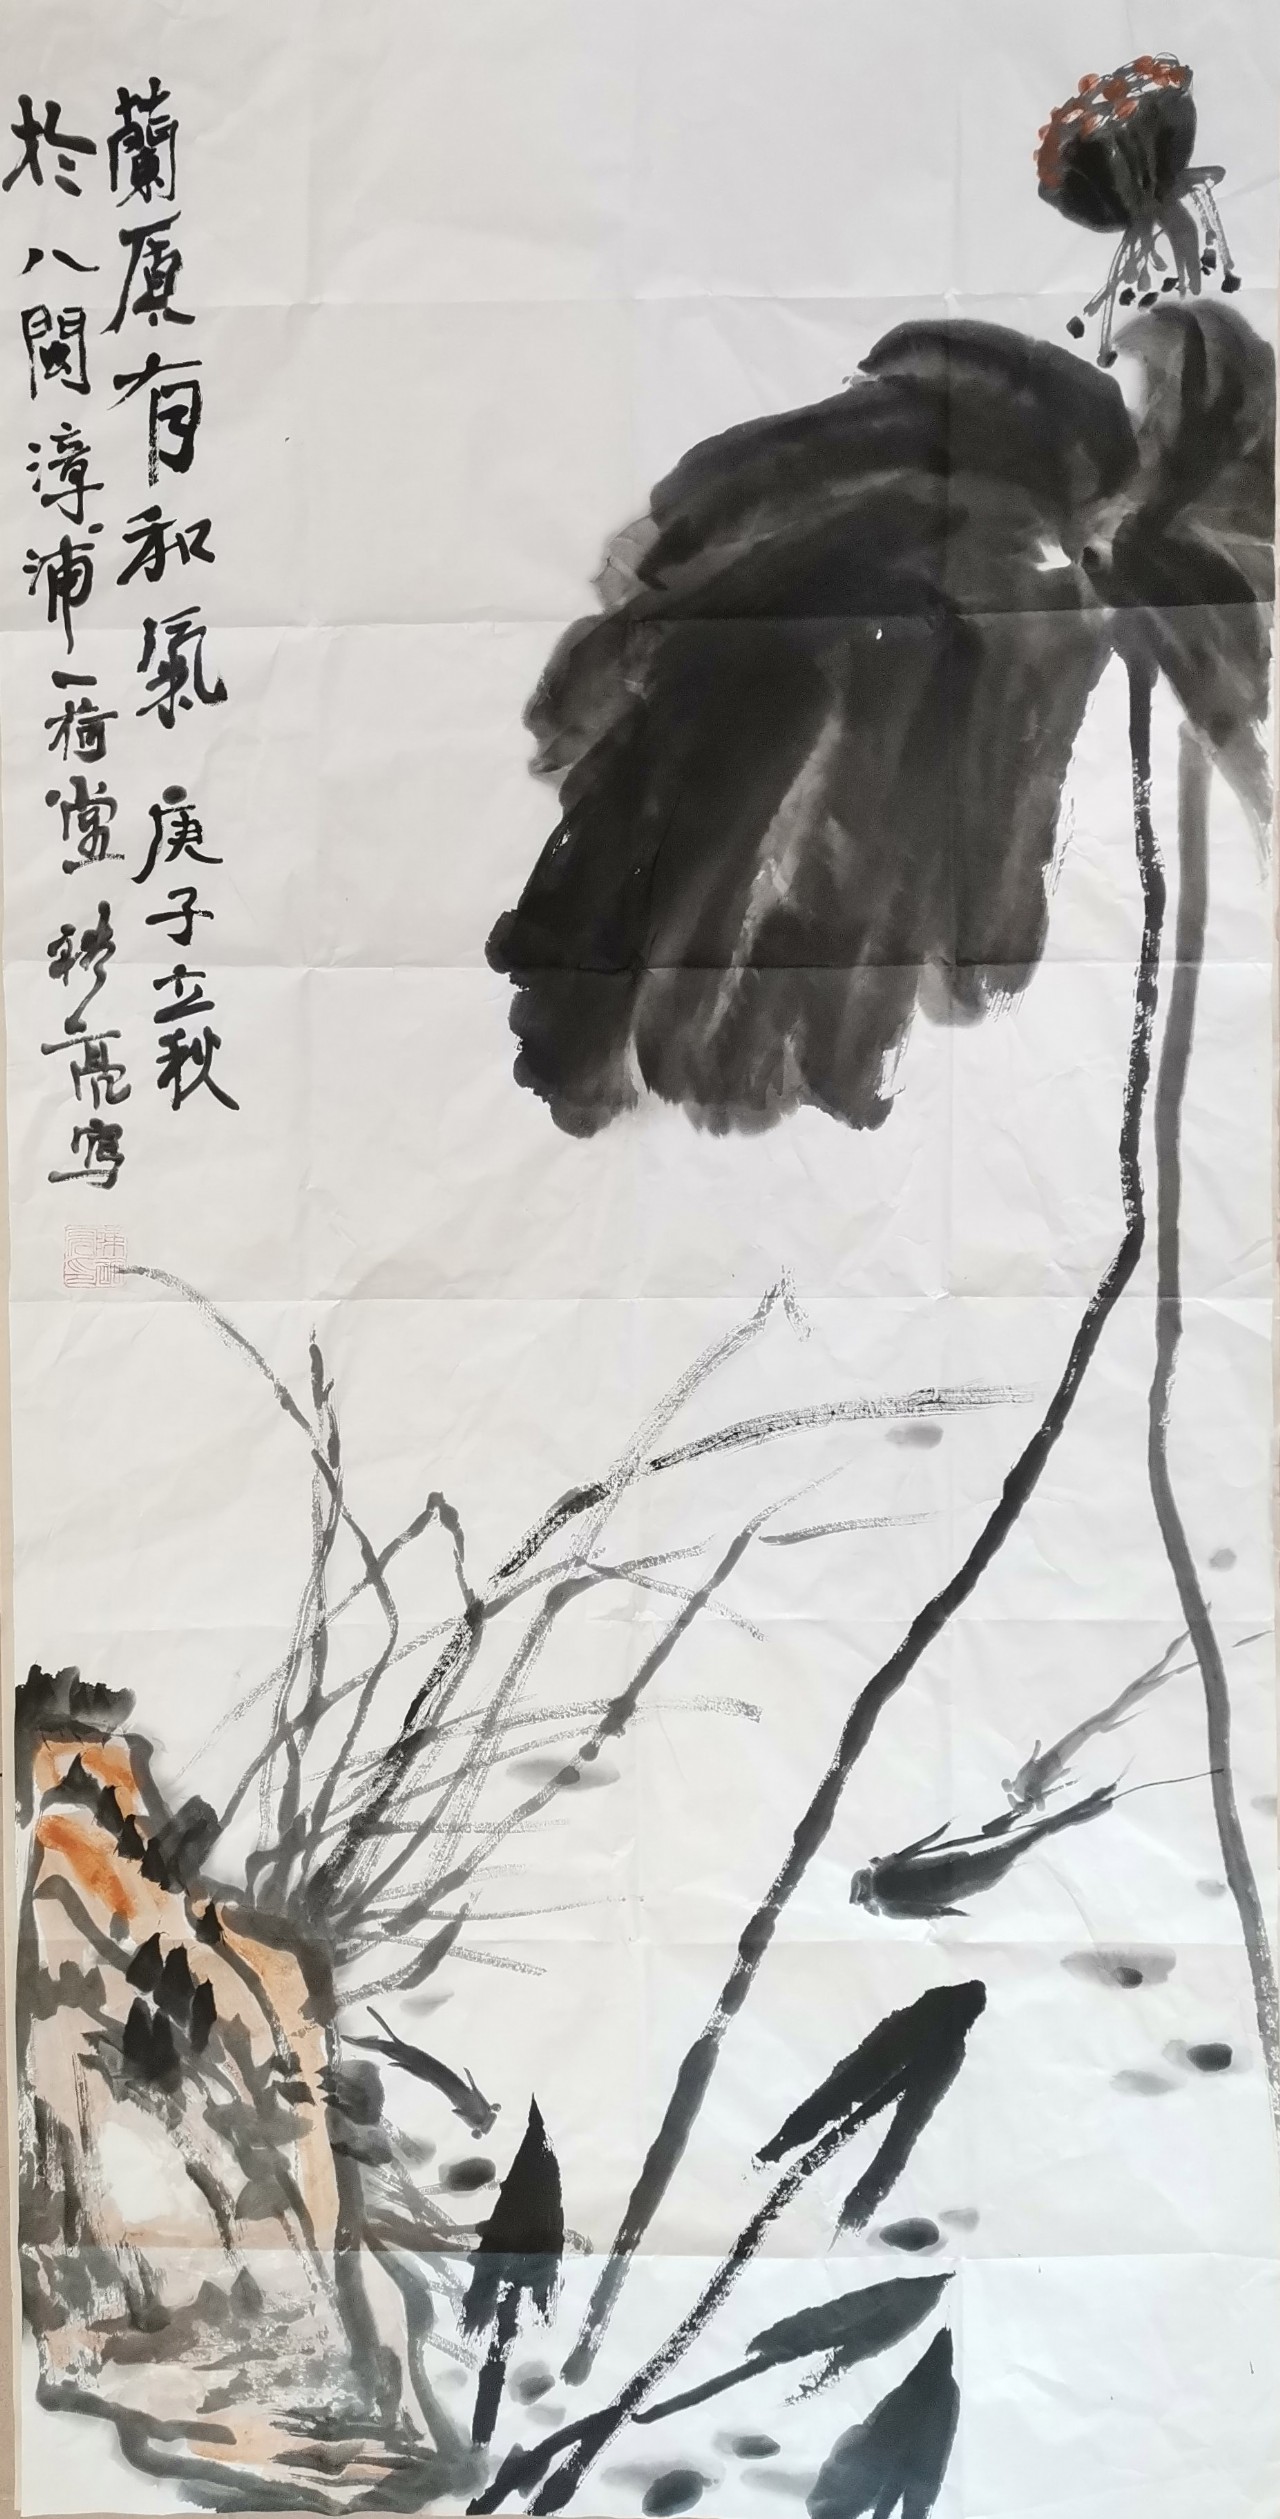 蘭原有和氣 庚子立秋
於八閩漳浦一荷堂 亮寫